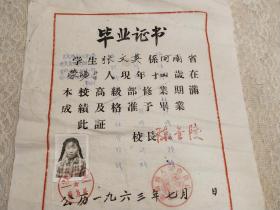 毕业证书
学生张文英係河南省
荥阳县人现年十四歲在
本校高級部修業期滿
成績及格准予畢業
此証
校長
公历一九六三年七月 日